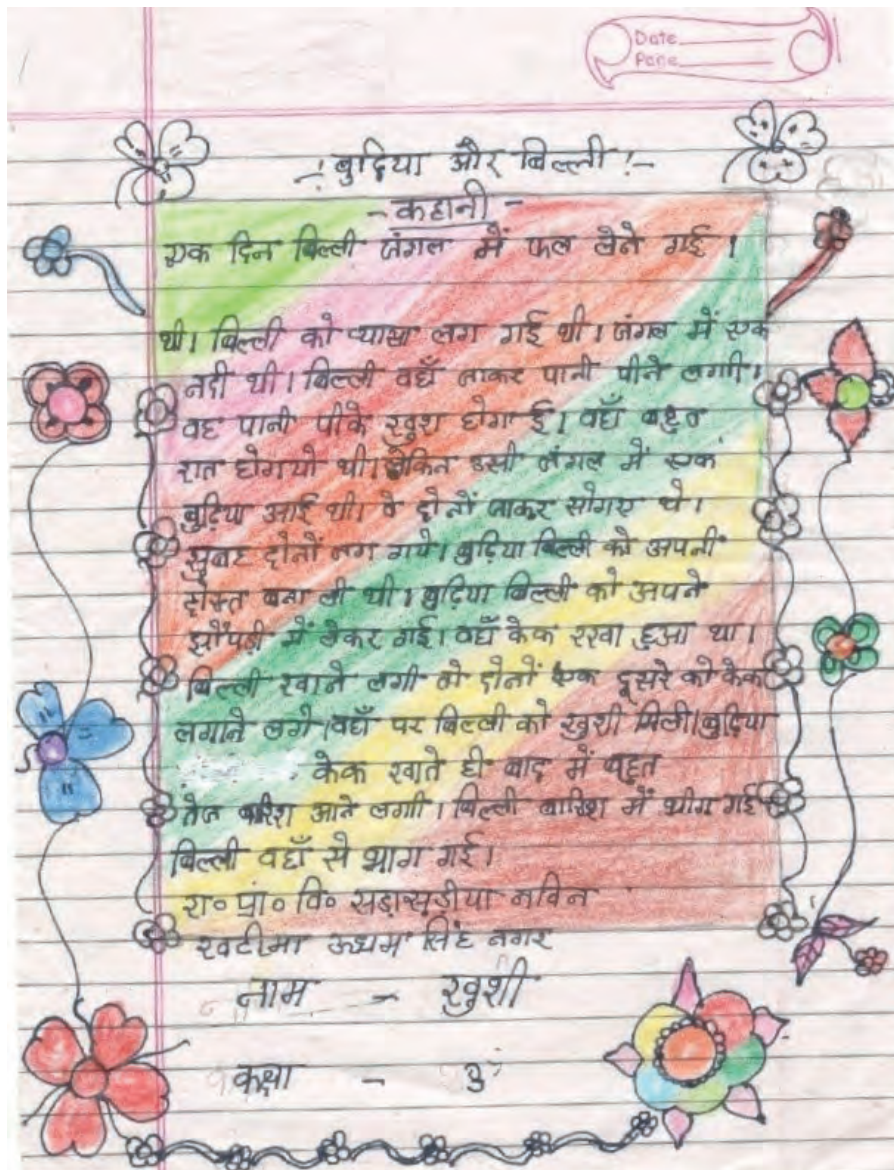 Date
Page
-! बुढ़िया और बिल्ली !-
- कहानी -
एक दिन बिल्ली जंगल में फल लेने गई ।
थी। बिल्ली को प्यासा लग गई थी। जंगल में एक
नदी थी। बिल्ली वहाँ जाकर पानी पीने लगी।
वह पानी पीके खुश होगा ई। वहाँ बहुत
रात होगयी थी। लेकिन उसी जंगल में एक
बुढ़िया आई थी। वे दोनों जाकर सोगए थे।
सुबह दोनों जग गये। बुढ़िया बिल्ली को अपनी
दोस्त बना ली थी। बुढ़िया बिल्ली को अपने
झोंपड़ी में लेकर गई। वहाँ केक रखा हुआ था।
बिल्ली खाने लगी तो दोनों एक दूसरे को केक
लगाने लगे। वहाँ पर बिल्ली को खुशी मिली। बुढ़िया
केक खाते ही बाद में बहुत
तेज बारिश आने लगी। बिल्ली बारिश में भीग गई
बिल्ली वहाँ से भाग गई।
रा० प्रा० वि० सड़ासड़ीया नविन
खटीमा ऊधम सिंह नगर
नाम - खुशी
कक्षा - 3